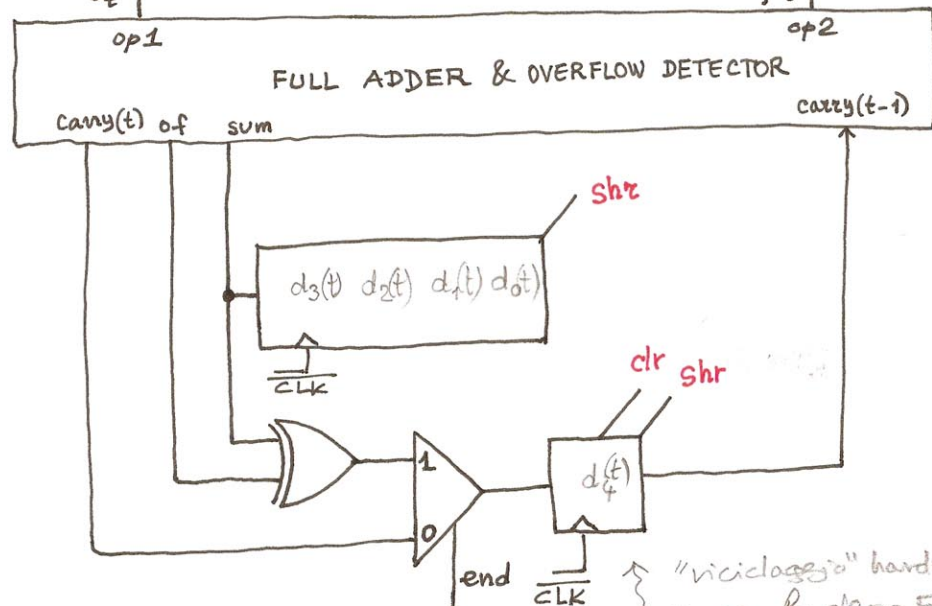 op1
op2
FULL ADDER & OVERFLOW DETECTOR
carry(t) of sum
carry(t-1)
shr
d₃(t) d₂(t) d₁(t) d₀(t)
CLK
clr shr
1
d₄(t)
0
end
CLK
"riciclaggio" hard